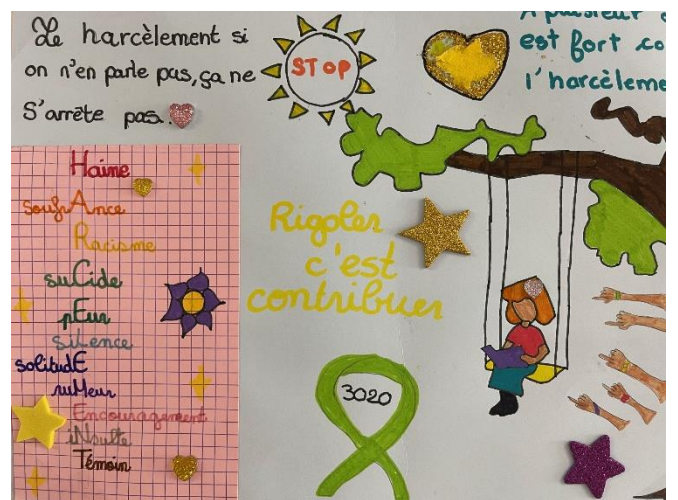 Le harcèlement si
on n'en parle pas, ça ne
S'arrête pas.
STOP
A plusieur
est fort co
l'harcèleme
Haine
soufrAnce
Racisme
suCide
pEur
siLence
solitudE
ruMeur
Encouragement
iNsulte
Témoin
Rigoler
c'est
contribuer
3020